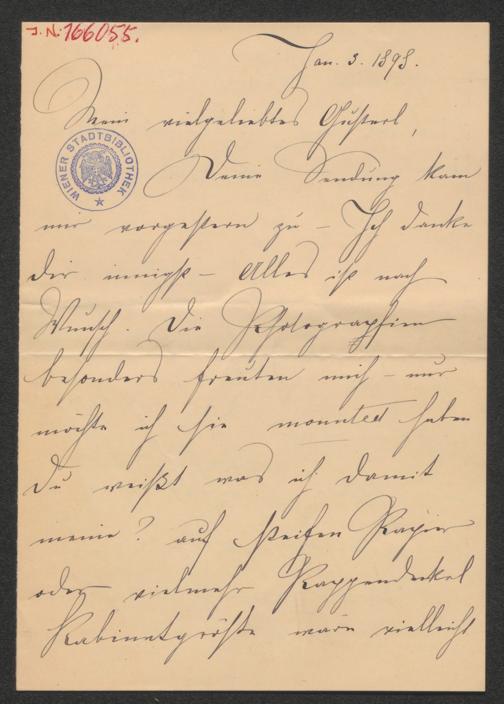 J. N. 166055.
Jan. 3. 1898.
Mein vielgeliebtes Gusterl,
WIENER STADTBIBLIOTHEK
Deine Sendung kam
mir vorgestern zu – Ich danke
dir innigst – Alles ist nach
Wunsch. Die Photographien
besonders freuten mich – nur
möchte ich sie mounted haben
Du weißt was ich damit
meine? auf steifen Papier
oder vielmehr Pappendeckel
Kabinetgröße wäre vielleicht